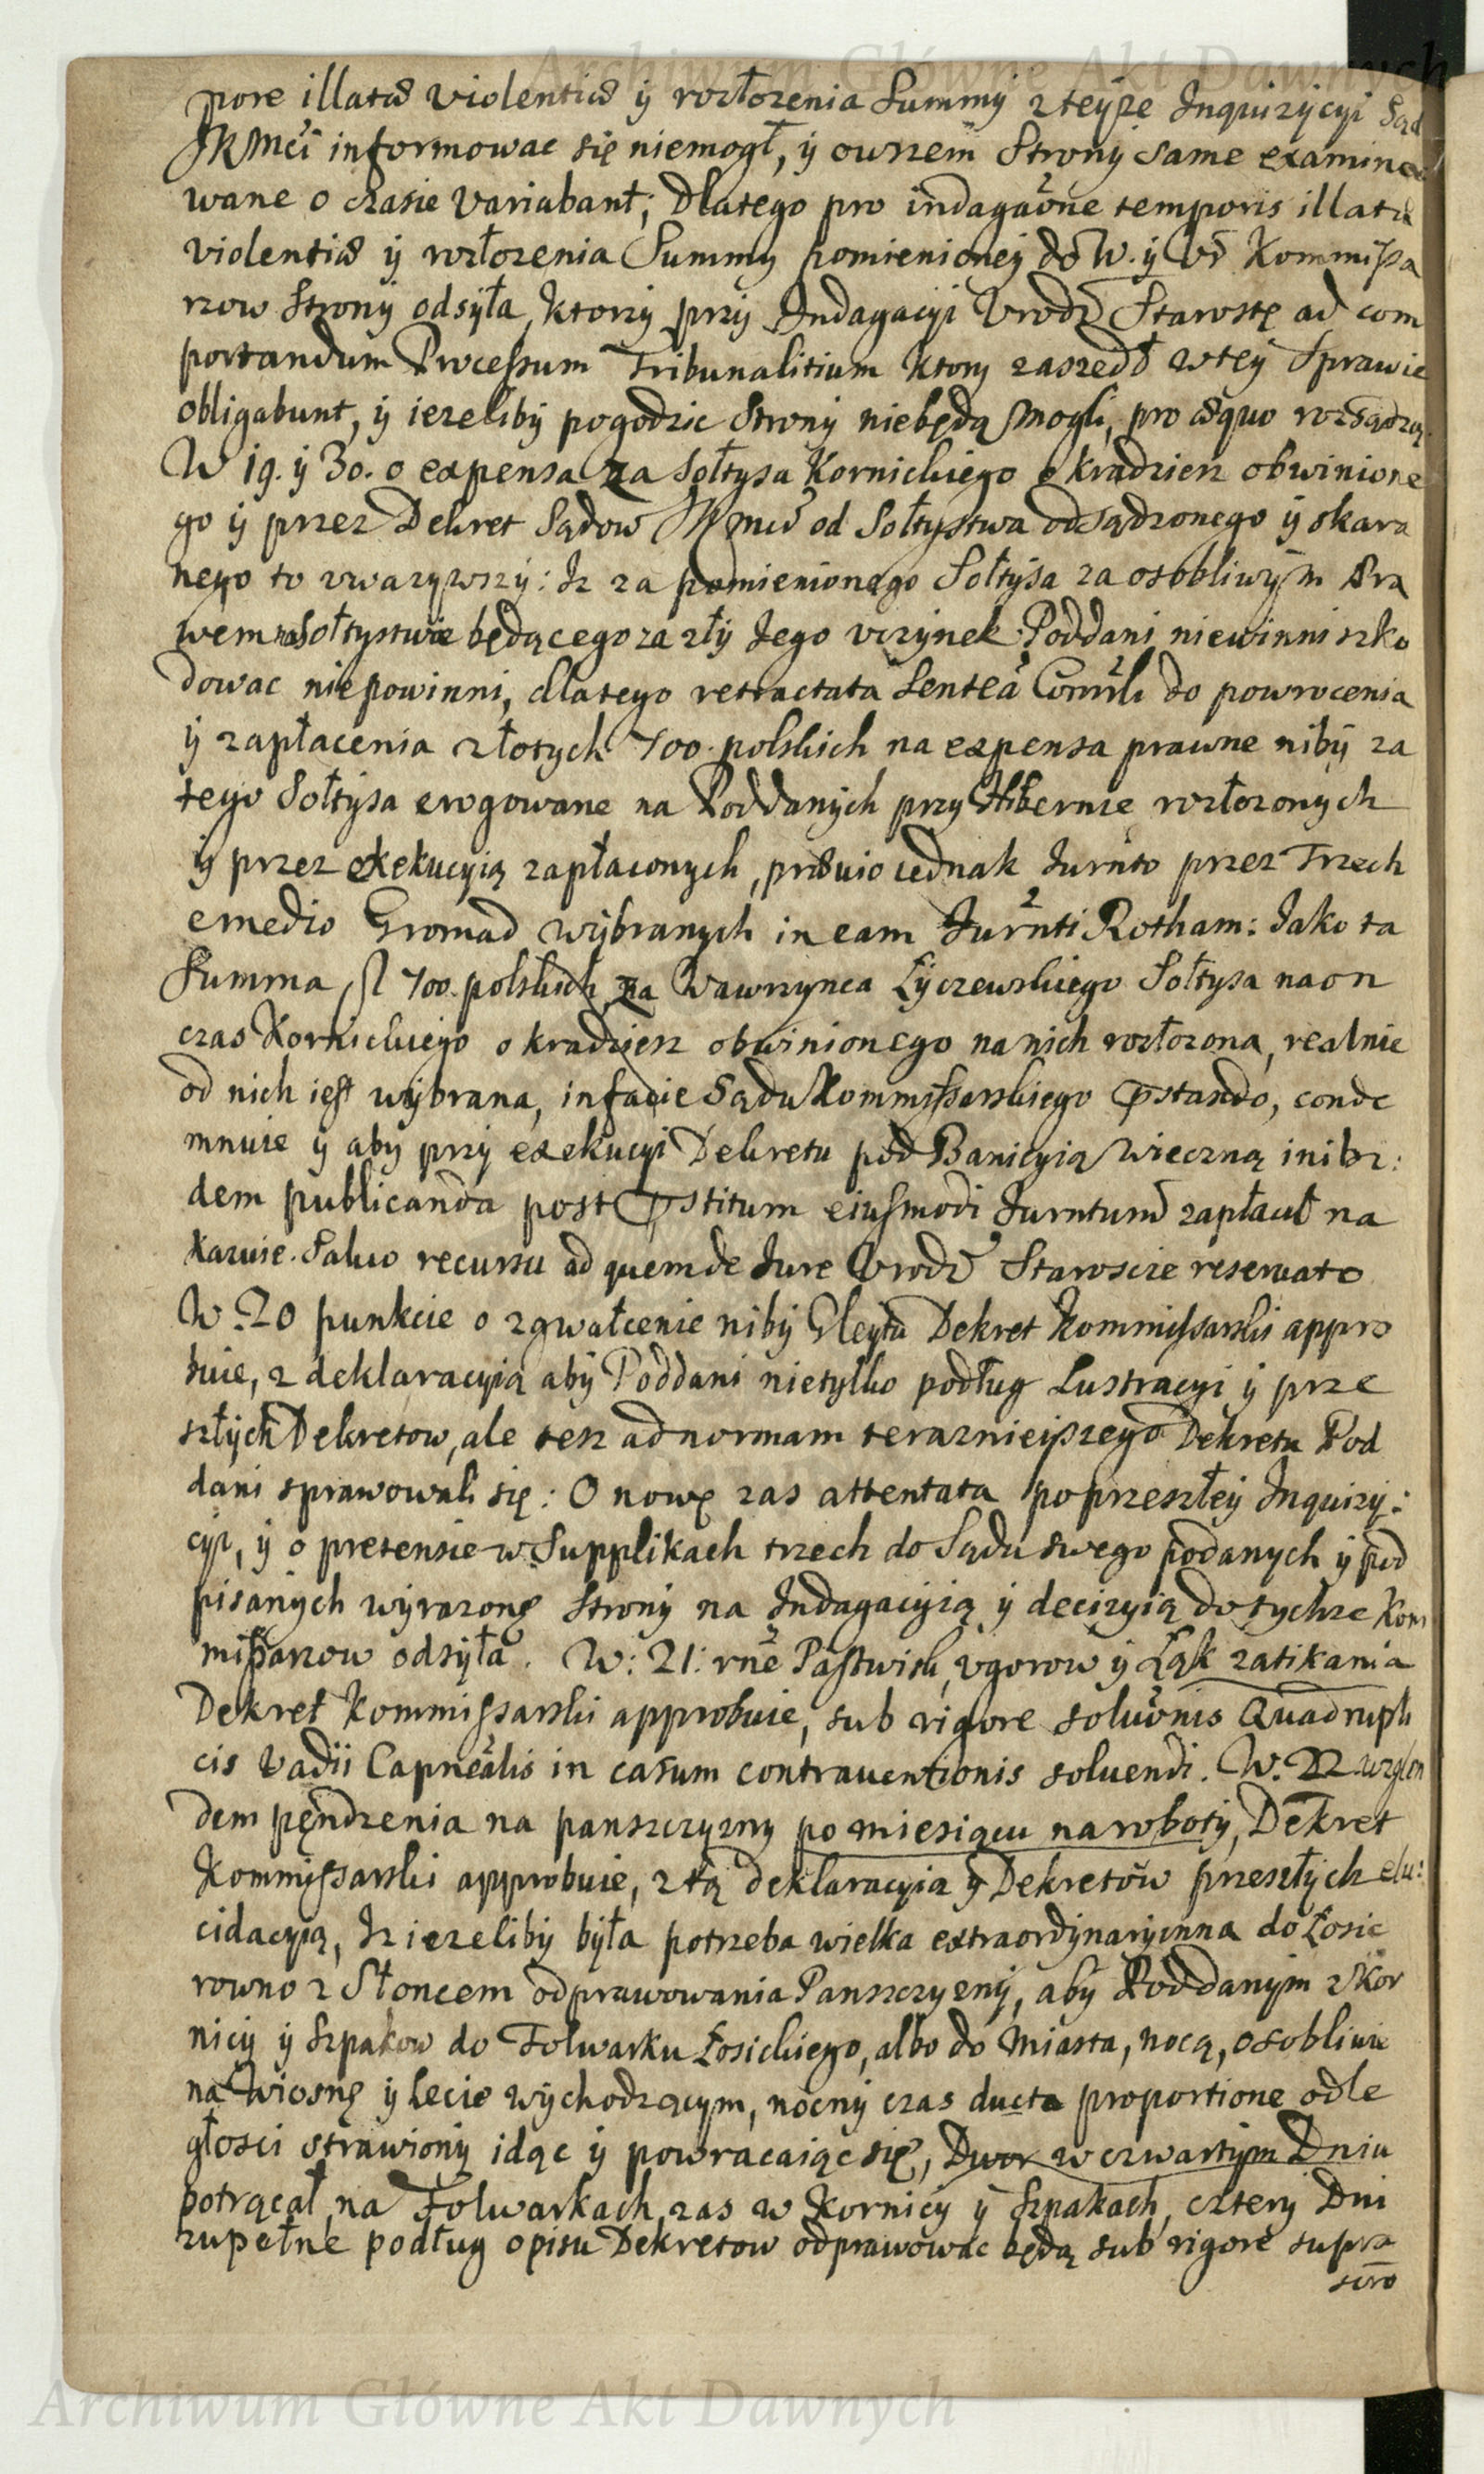 Archiwum Główne Akt Dawnych
pore illatæ violentiæ ÿ rozłozenia Summÿ z teÿze Inquizÿcÿi Sąd
JKMci informowac się niemogł, ÿ owszem Stronÿ same examino
wane o czasie variabant; Dlatego pro indagaōne temporis illatæ
violentiæ ÿ rozłozenia Summÿ pomienioneÿ do W. ÿ Ur Kommissa
rzow Stronÿ odsÿła, ktorzÿ przÿ Indagacÿi Urodz Starostę ad com
portandum Processum Tribunalitium ktorÿ zaszedł w teÿ Sprawie
obligabunt, ÿ iezelibÿ pogodzic Stronÿ niebędą mogli, pro æquo rozsądzą.
W 19. ÿ 30. o expensa za Sołtysa Kornickiego o kradziesz obwinione
go ÿ przez Dekret Sądow JKMci od Sołtystwa odsądzonego ÿ skara
nego to uwazÿwszÿ: Iz za pomienionego Sołtÿsa za osobliwÿm Pra
wem na Sołtystwie będącego za złÿ Iego uczÿnek Poddani niewinni szko
dowac niepowinni, dlatego retractata Sentēa Comrli do powrocenia
ÿ zapłacenia złotych 700. polskich na expensa prawne nibÿ za
tego Sołtÿsa erogowane na Poddanÿch przy Hibernie rozłozonych
ÿ przez exekucÿią zapłaconych, præuio iednak Jurnto przez Trzech
e medio Gromad wÿbranych in eam Jurnti Rotham: Iako ta
Summa fl 700. polskich za Wawrzynca Łÿczewskiego Sołtysa na on
czas Kornickiego o kradziesz obwinionego na nich rozłozona, realnie
od nich iest wÿbrana, in facie Sądu Kommissarskiego præstando, conde
mnuie ÿ aby przÿ exekucÿi Dekretu pod Banicÿią wieczną inibi:
dem publicanda post præstitum eiusmodi Jurntum zapłacił na
kazuie. Saluo recursu ad quem de Jure Urodz Staroscie reseruato
W. 20 punkcie o zgwałcenie nibÿ Gleytu Dekret Kommissarski appro
buie, z deklaracyią abÿ Poddani nietÿlko podług Lustracyi ÿ prze
szłÿch Dekretow, ale tesz ad normam teraznieÿszego Dekretu Pod
dani sprawowali się: O nowe zas attentata po przeszłeÿ Inquizÿ:
cÿi, ÿ o pretensie w Supplikach trzech do Sądu swego podanych ÿ pod
pisanÿch wÿrazone Stronÿ na Indagacÿią ÿ decizyią do tychze Kom
missarzow odsÿła. W: 21: rnē Pastwisk, ugorow ÿ Łąk zatikania
Dekret Kommissarski approbuie, sub rigore soluōnis Quadrupli
cis Vadii Capnēalis in casum contrauentionis soluendi. W. 22 wzglen
dem pędzenia na panszczyzny po miesiącu na robotÿ, Dekret
Kommissarski approbuie, z tą deklaracyią ÿ Dekretow przeszłÿch elu:
cidacyią, Iz iezelibÿ bÿła potrzeba wielka extraordÿnarÿinna do Łosic
rowno z Słoncem odprawowania Panszczyznÿ, abÿ Poddanÿm z Kor
nicÿ ÿ Szpakow do Folwarku Łosickiego, albo do Miasta, nocą, osobliwie
na Wiosnę ÿ lecie wÿchodzącym, nocnÿ czas ducta proportione odle
głosci strawionÿ idąc ÿ powracaiąc się, Dwor w czwartÿm Dniu
potrącał, na Folwarkach zas w Kornicÿ ÿ Szpakach, czterÿ Dni
zupełne podług opisu Dekretow odprawowac będą sub rigore supra
scro
Archiwum Główne Akt Dawnych